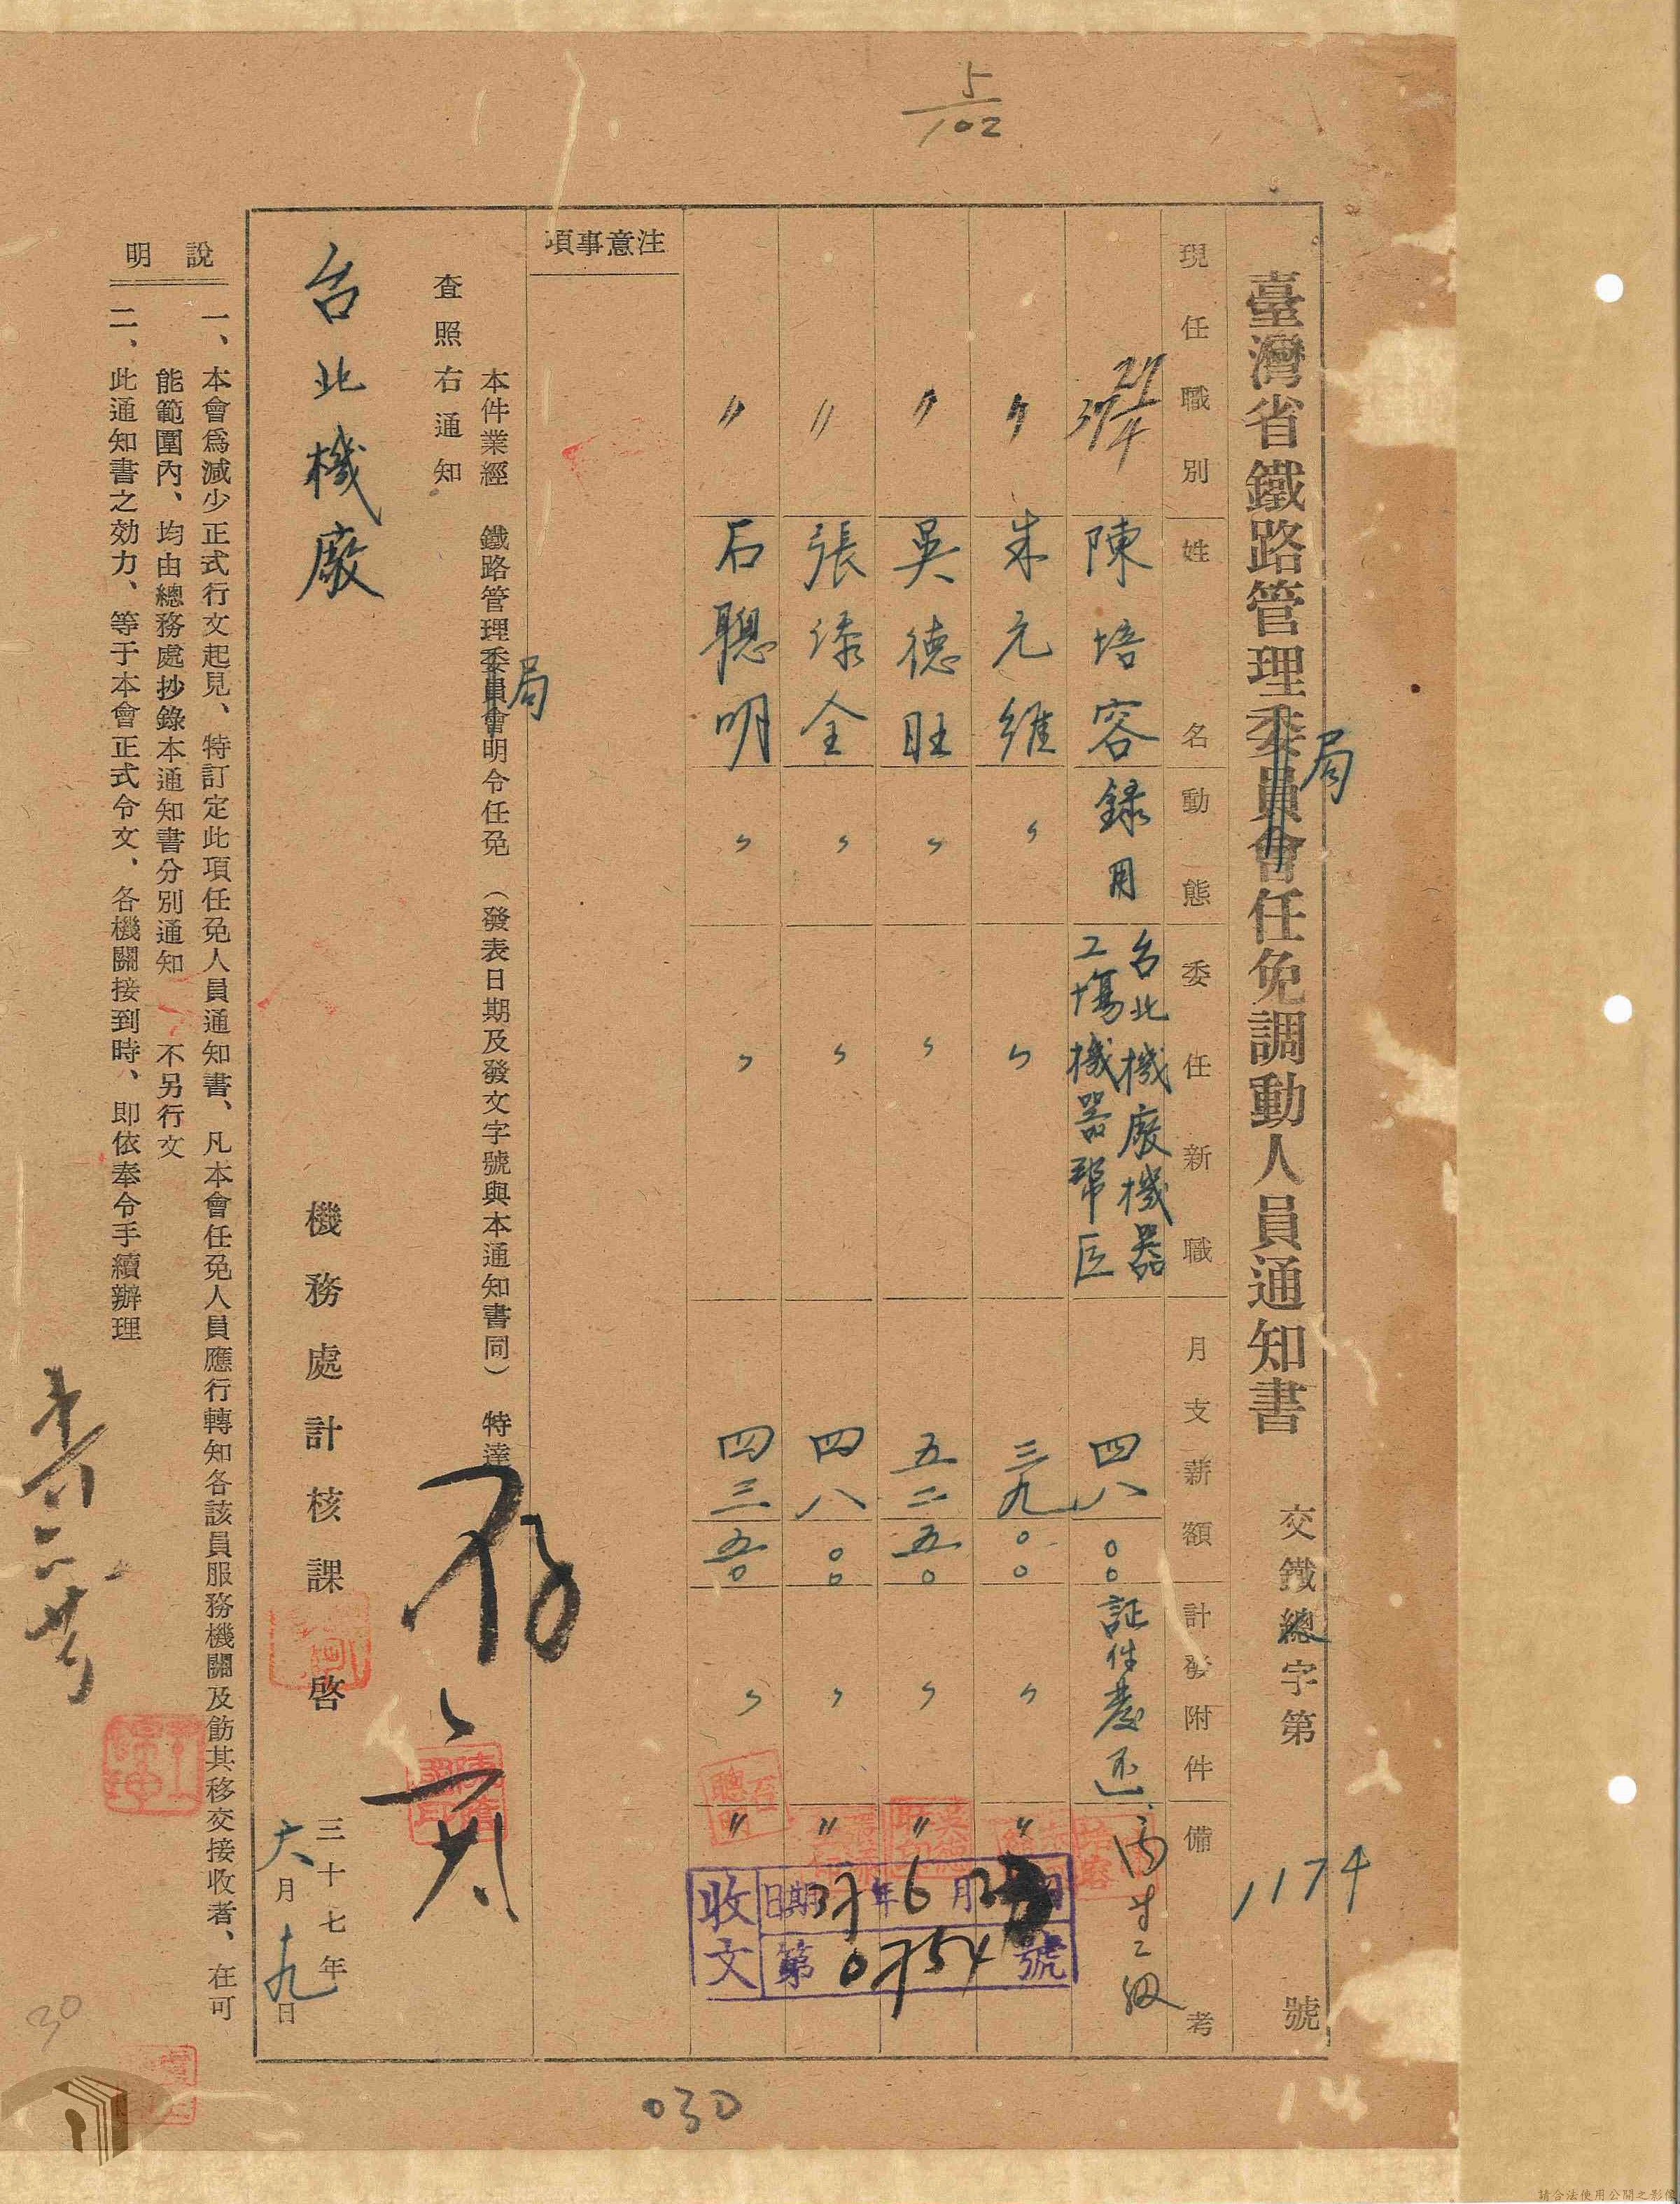 5/102
臺灣省鐵路管理委員會任免調動人員通知書
局
交鐵總字第1174號
現任職別 姓名 動態 委任新職 月支薪額 計發附件 備考
37 21/4 陳培容 錄用 台北機廠機器工場機器幫匠 四八 〇〇 証件發还 丙等二級
〃 朱元維 〃 〃 三九 〇〇 〃 〃
〃 吳德旺 〃 〃 五二 五〇 〃 〃
〃 張添全 〃 〃 四八 〇〇 〃 〃
〃 石聰明 〃 〃 四三 五〇 〃 〃
收文 日期 37年6月 日
第0754號
注意事項
本件業經 鐵路管理委員會明令任免 (發表日期及發文字號與本通知書同) 特達
局
查照右通知
存
台北機廠
機務處計核課 啓
三十七年六月十九日
說明
一、本會爲減少正式行文起見、特訂定此項任免人員通知書、凡本會任免人員應行轉知各該員服務機關及飭其移交接收者、在可
能範圍內、均由總務處抄錄本通知書分別通知 不另行文
二、此通知書之効力、等于本會正式令文、各機關接到時、即依奉令手續辦理
30
030
請合法使用公開之影像